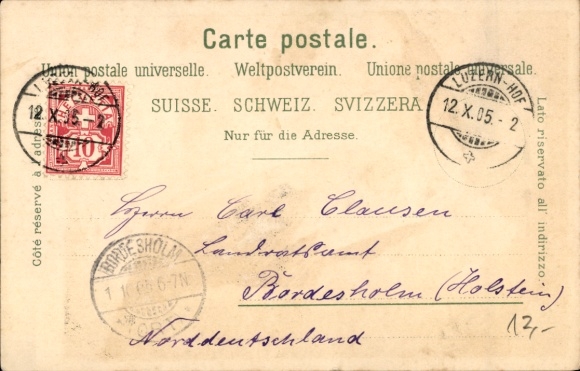 Carte postale.
Union postale universelle. Weltpostverein. Unione postale universale.
SUISSE. SCHWEIZ. SVIZZERA.
Nur für die Adresse.
Côté réservé à l'adresse.
Lato riservato all' indirizzo.
LUZERN-HOF
12.X.05.-2
10
LUZERN-HOF
12.X.05.-2
Herrn Carl Clausen
Landratsamt
Bordesholm (Holstein)
Norddeutschland
BORDESHOLM
6-7N
12,-